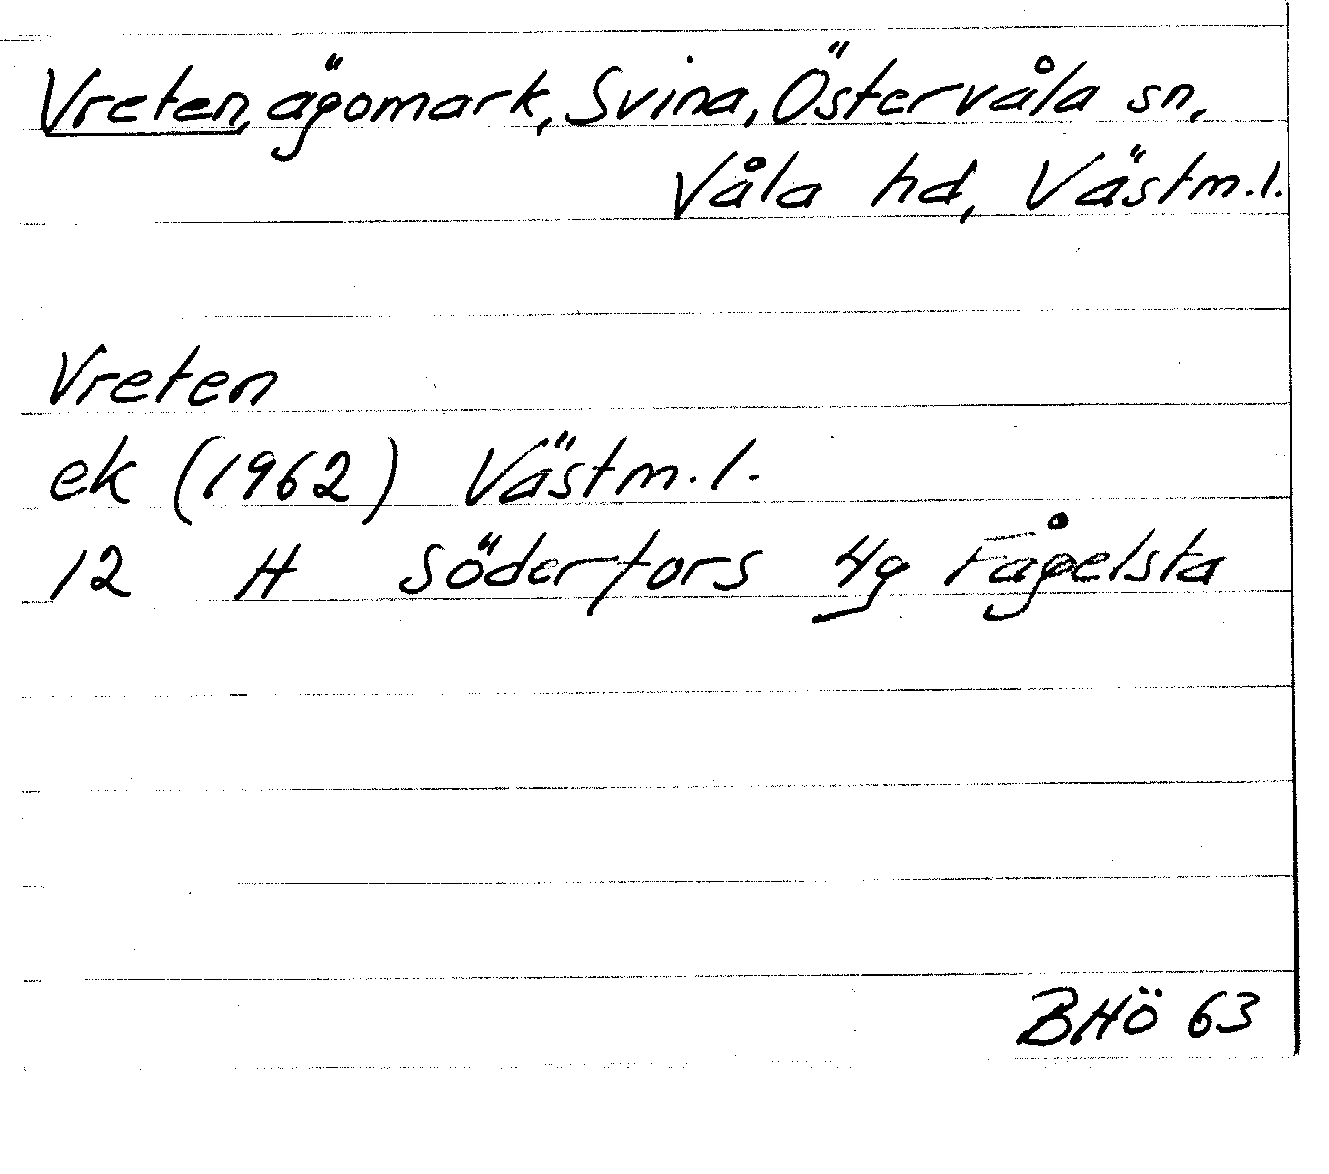 Vreten, ägomark, Svina, Östervåla sn,
Våla hd, Västm.l.
Vreten
ek (1962) Västm.l.
12 H Söderfors 4g Fågelsta
BHÖ 63